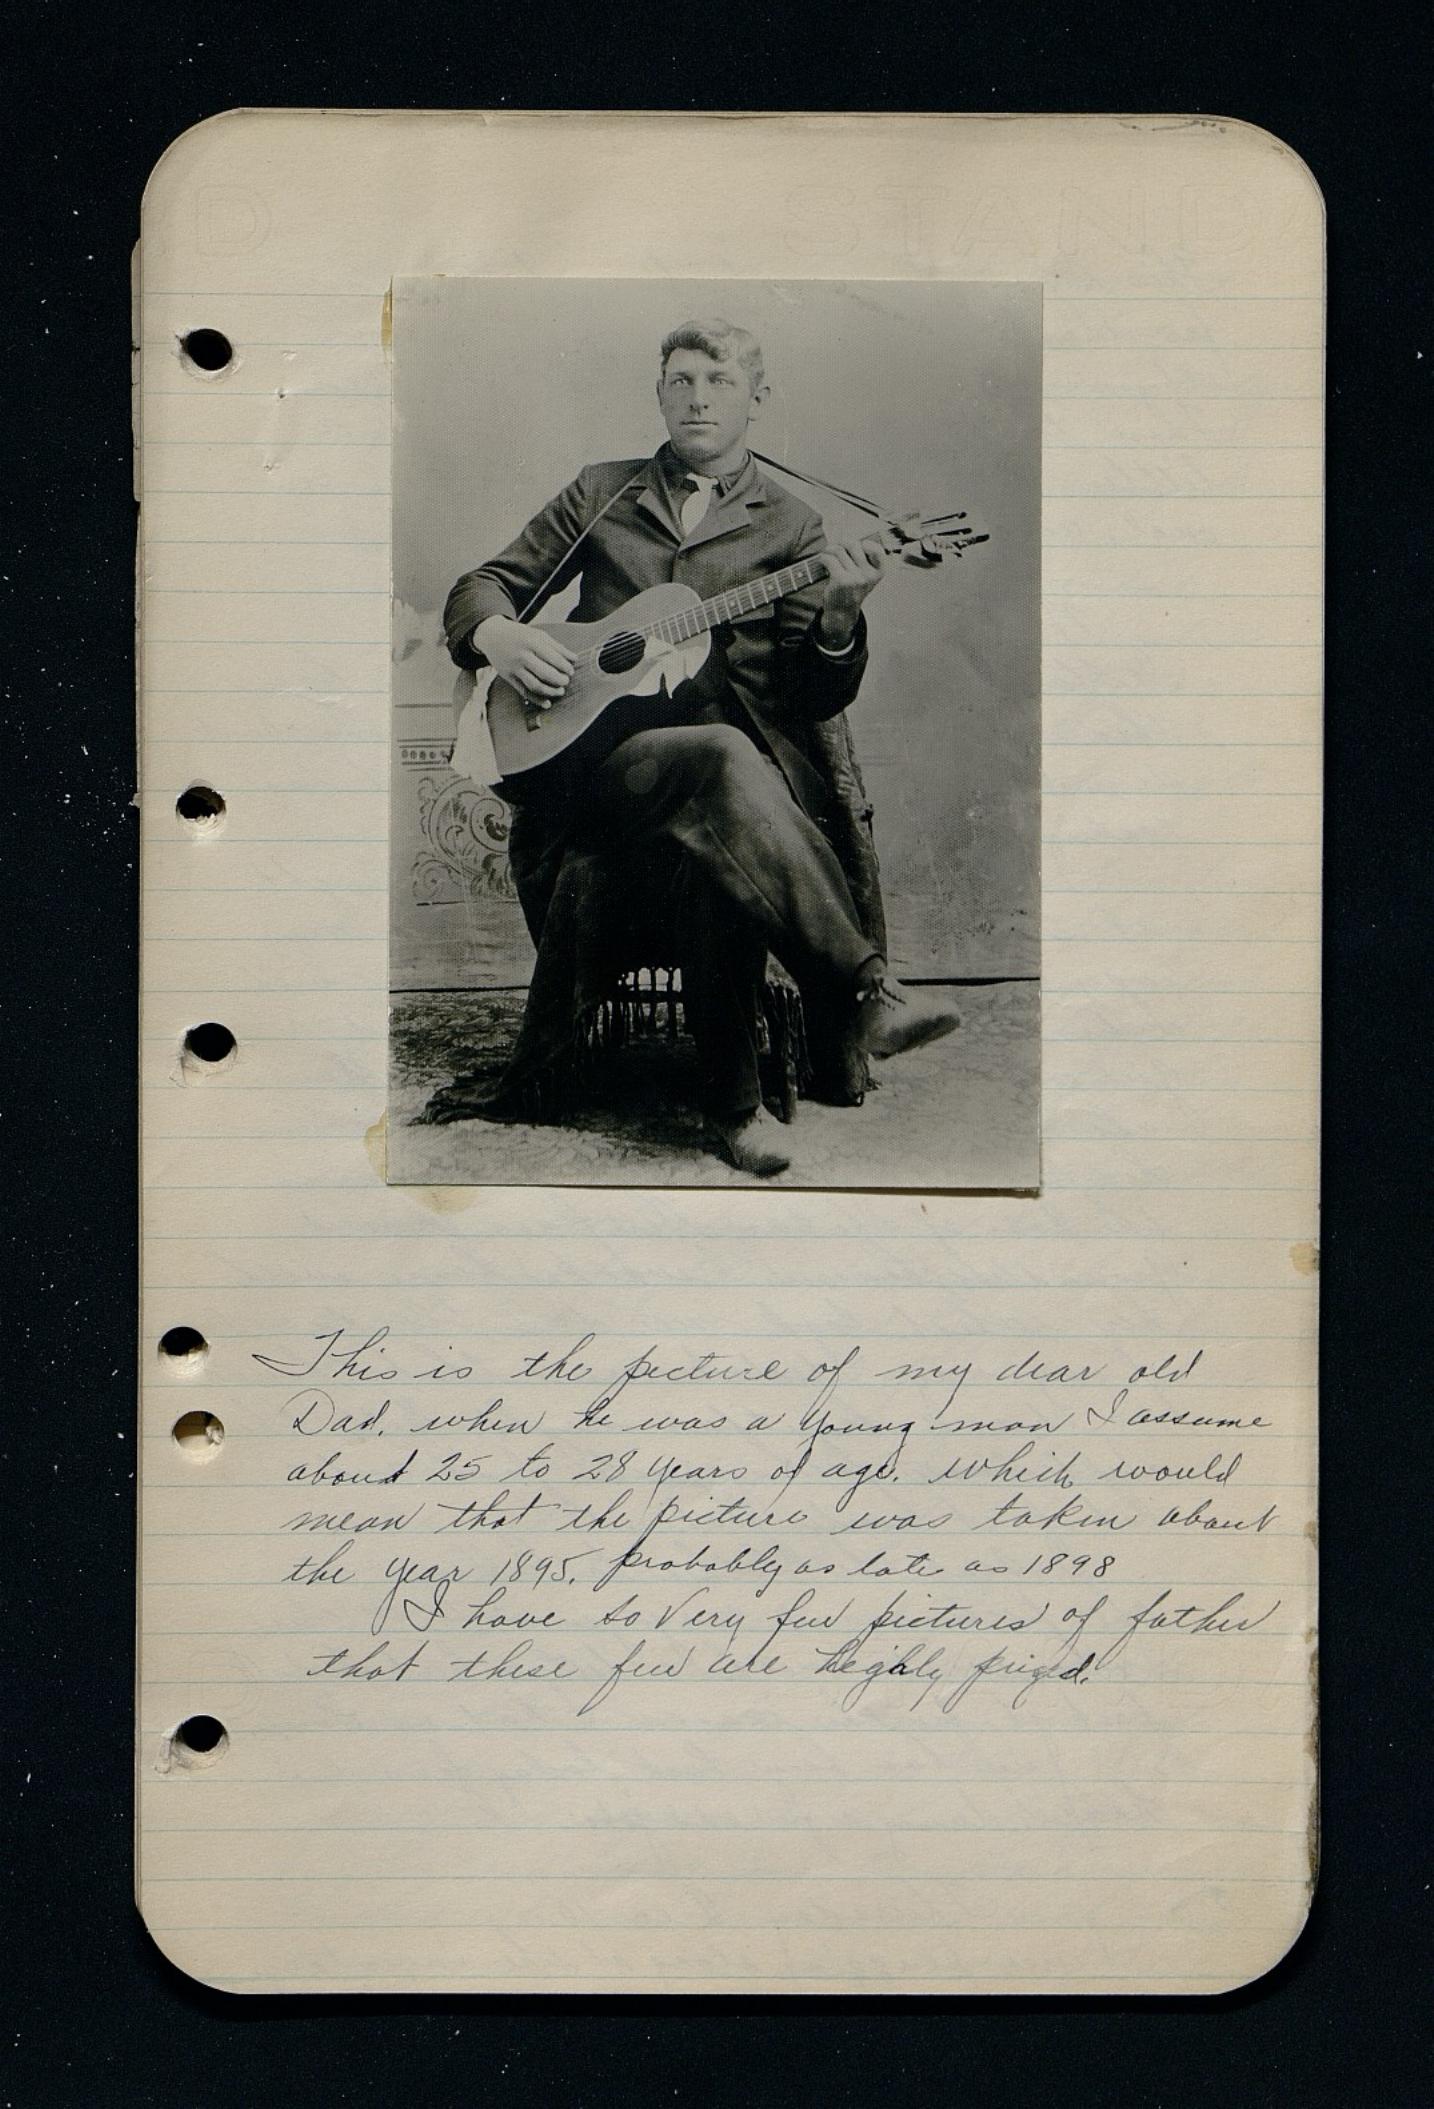 STAND
D
This is the picture of my dear old
Dad. when he was a young man I assume
about 25 to 28 years of age. which would
mean that the picture was taken about
the year 1895. probably as late as 1898
I have so Very few pictures of father
that these few are highly prized.